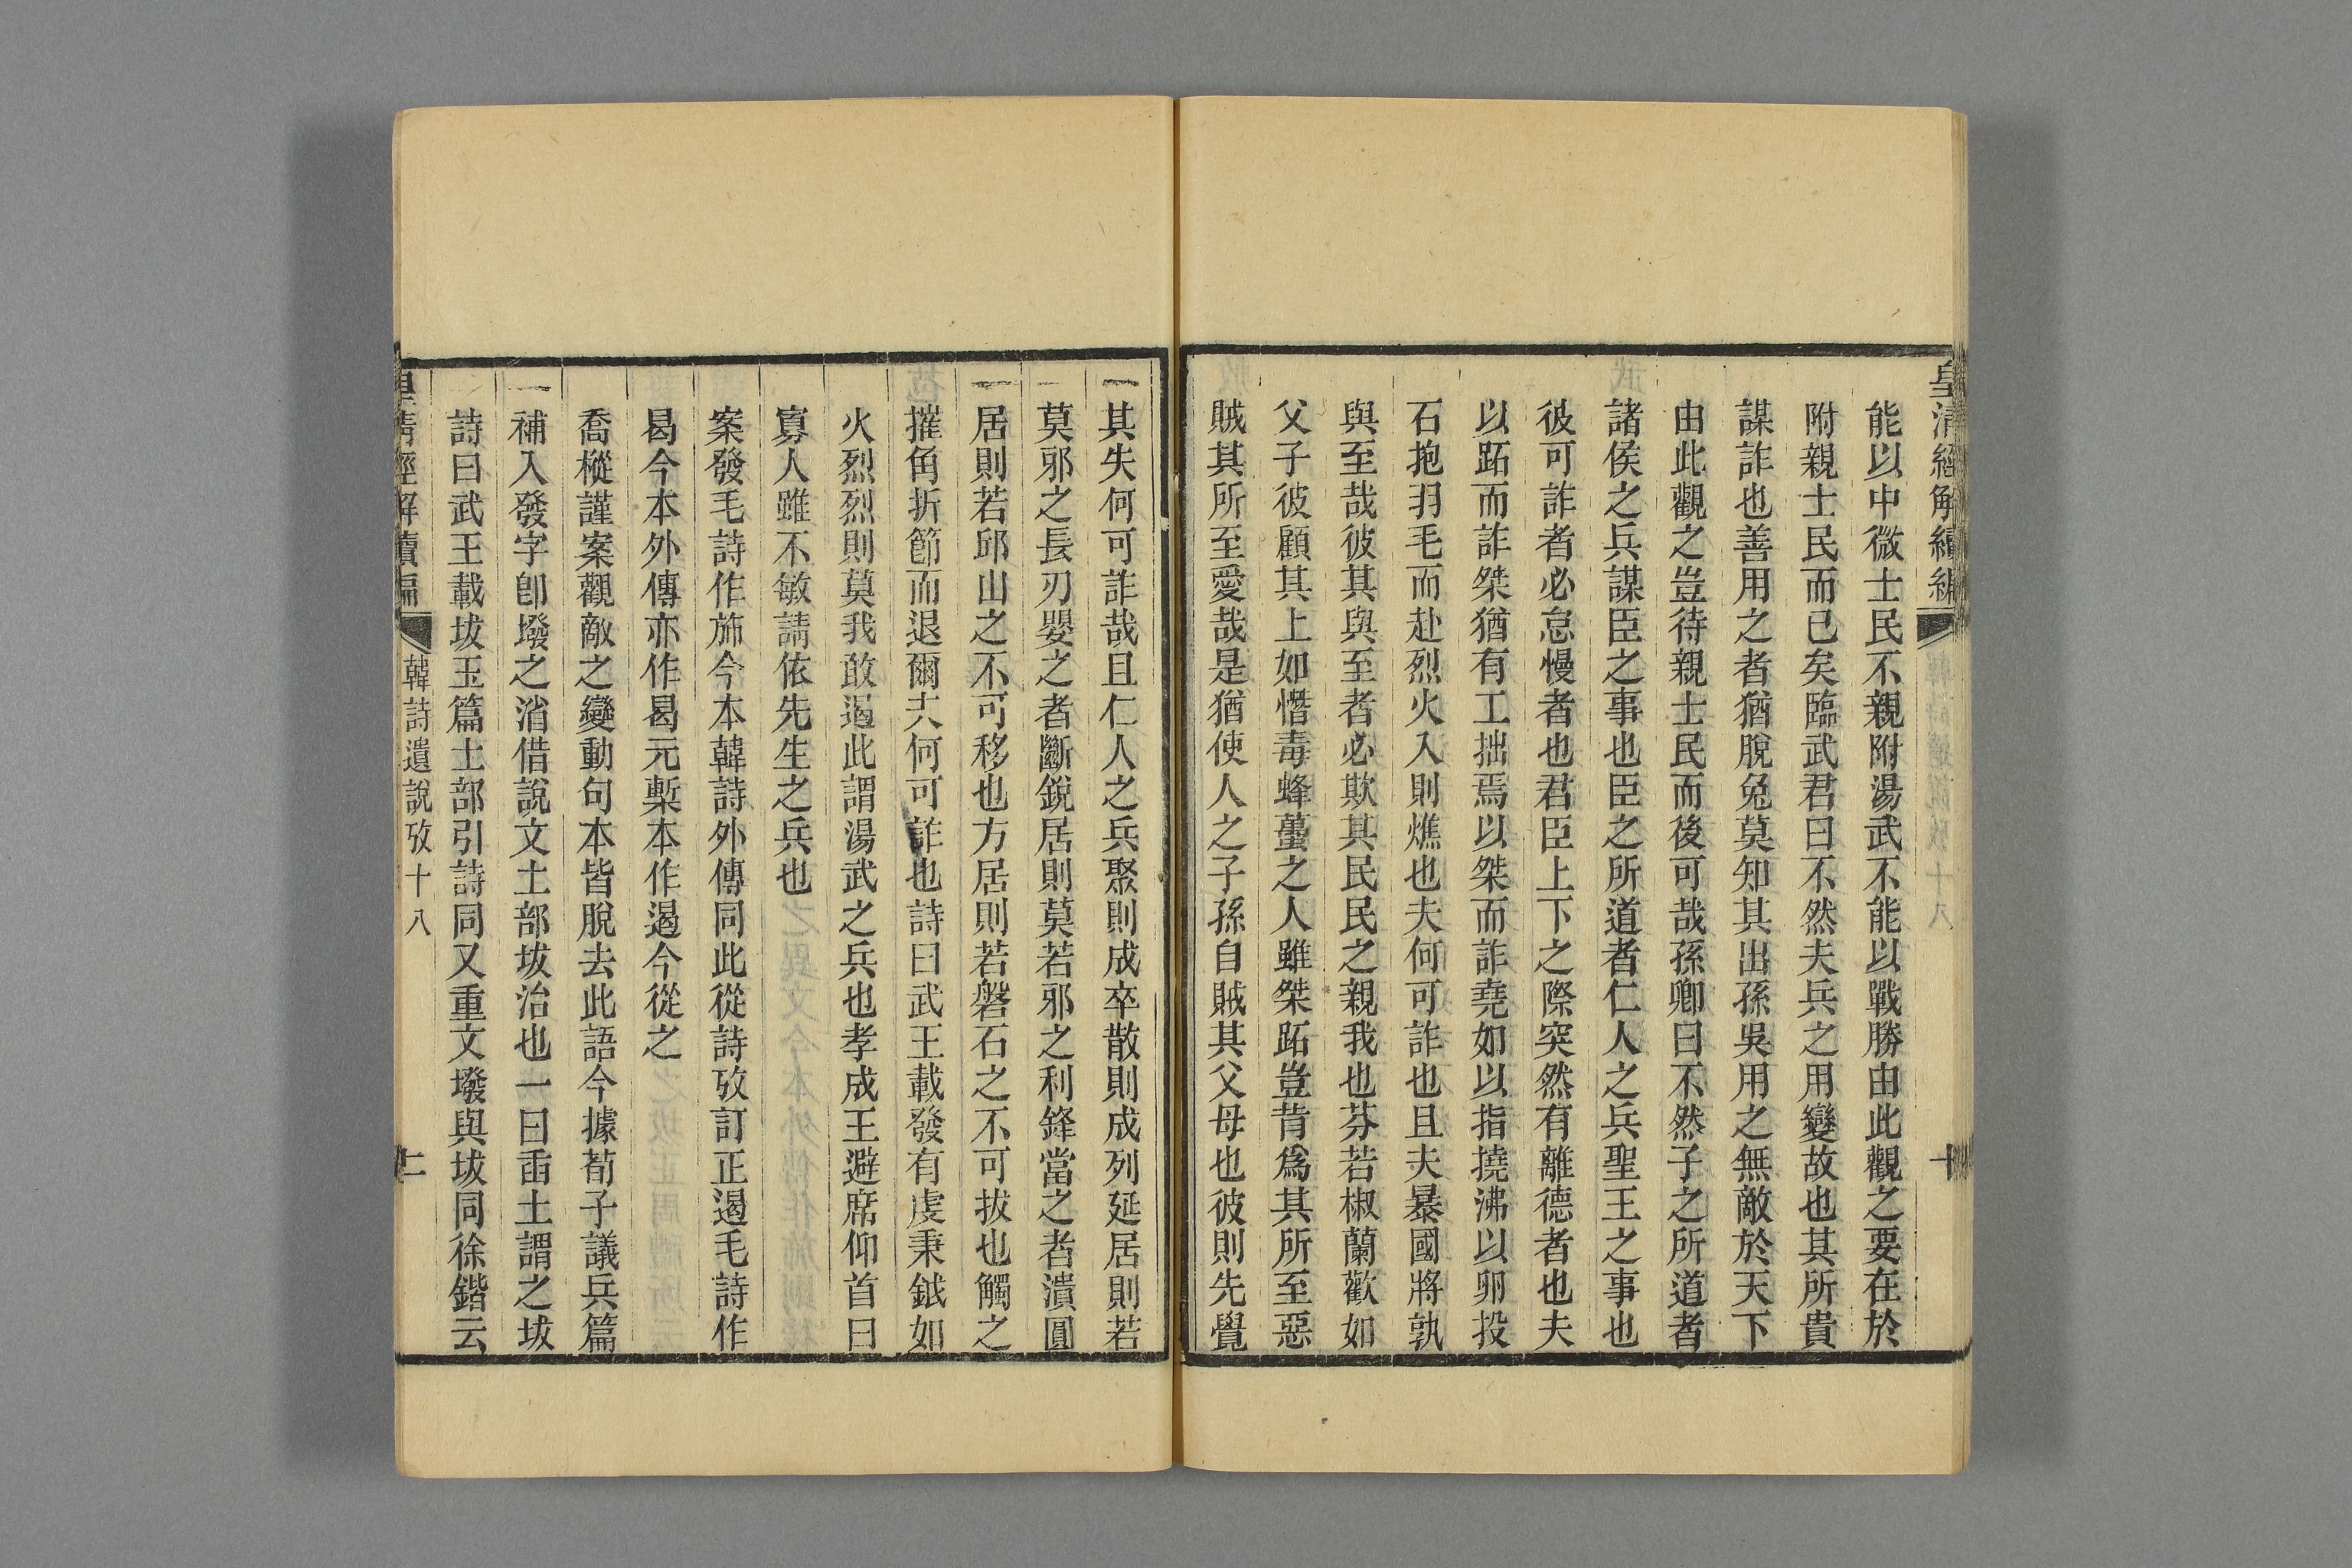 皇清經解續編
十
能以中微士民不親附湯武不能以戰勝由此觀之要在於
附親士民而已矣臨武君曰不然夫兵之用變故也其所貴
謀詐也善用之者猶脫兔莫知其出孫吳用之無敵於天下
由此觀之豈待親士民而後可哉孫卿曰不然子之所道者
諸侯之兵謀臣之事也臣之所道者仁人之兵聖王之事也
彼可詐者必怠慢者也君臣上下之際突然有離德者也夫
以跖而詐桀猶有工拙焉以桀而詐堯如以指撓沸以卵投
石抱羽毛而赴烈火入則燋也夫何可詐也且夫暴國將孰
與至哉彼其與至者必欺其民民之親我也芬若椒蘭歡如
父子彼顧其上如憯毒蜂蠆之人雖桀跖豈肯爲其所至惡
賊其所至愛哉是猶使人之子孫自賊其父母也彼則先覺
其失何可詐哉且仁人之兵聚則成卒散則成列延居則若
莫邪之長刃嬰之者斷銳居則莫若邪之利鋒當之者潰圓
居則若邱山之不可移也方居則若磐石之不可拔也觸之
摧角折節而退爾夫何可詐也詩曰武王載發有虔秉鉞如
火烈烈則莫我敢遏此謂湯武之兵也孝成王避席仰首曰
寡人雖不敏請依先生之兵也
案發毛詩作斾今本韓詩外傳同此從詩攷訂正遏毛詩作
曷今本外傳亦作曷元槧本作遏今從之
喬樅謹案觀敵之變動句本皆脫去此語今據荀子議兵篇
補入發字卽墢之消借說文土部坺治也一曰臿土謂之坺
詩曰武王載坺玉篇土部引詩同又重文墢與坺同徐鍇云
皇清經解續編
韓詩遺說攷十八
二